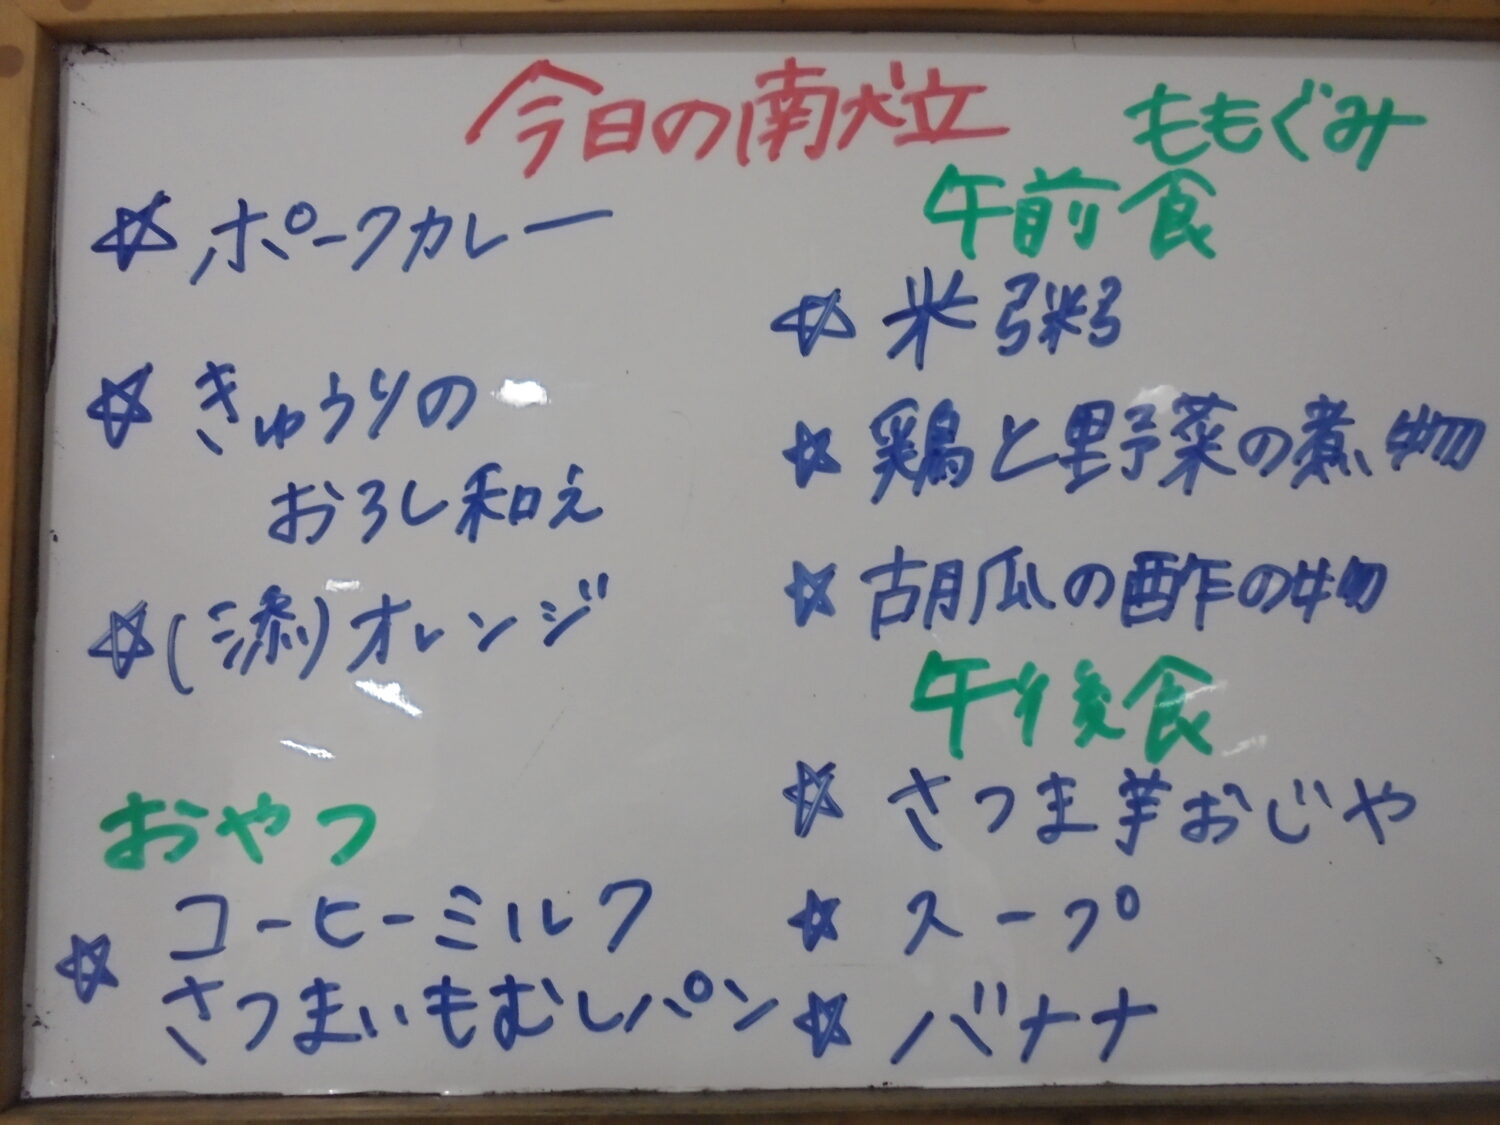 今日の献立
☆ポークカレー
☆きゅうりの
おろし和え
☆(添)オレンジ
おやつ
☆コーヒーミルク
さつまいもむしパン
ももぐみ
午前食
☆米粥
☆鶏と野菜の煮物
☆胡瓜の酢の物
午後食
☆さつま芋おじや
☆スープ
☆バナナ